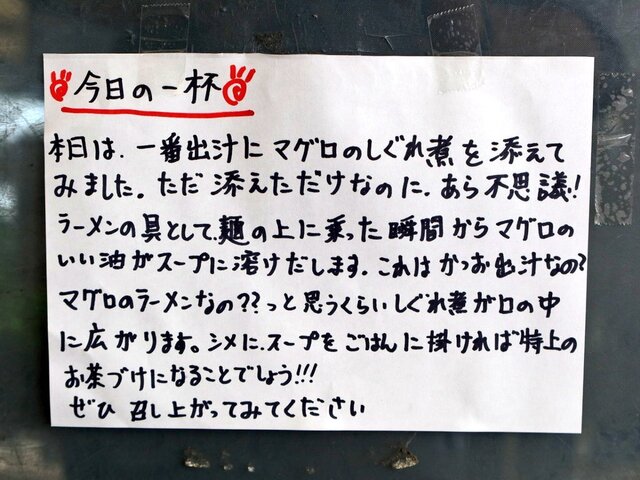 今日の一杯
本日は、一番出汁にマグロのしぐれ煮を添えて
みました。ただ添えただけなのに、あら不思議!
ラーメンの具として、麺の上に乗った瞬間からマグロの
いい油がスープに溶けだします。これはかつお出汁なの?
マグロのラーメンなの??っと思うくらいしぐれ煮が口の中
に広がります。シメに、スープをごはんに掛ければ特上の
お茶づけになることでしょう!!!
ぜひ召し上がってみてください